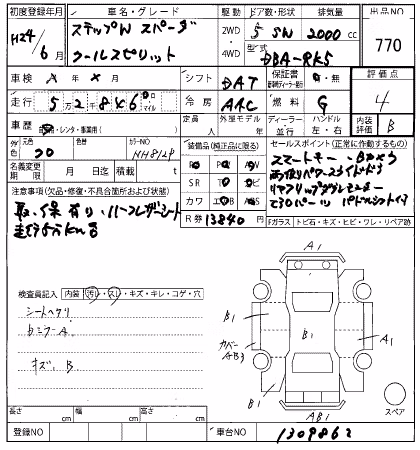 初度登録年月 車名・グレード 駆動 ドア数・形状 排気量 出品NO
H24/6月 ステップW スパーダ 2WD 5 SW 2000cc 770
クールスピリット 4WD 型式 DBA-RK5
車検 年 X 月 シフト DAT 保証書 有・無 評価点
走行 52846 km マイル 冷房 AAC 燃料 G 4
車歴 自家・レンタ・事業用( ) 外装モデル 年 ディーラー 並行 ハンドル 左・右 内装評価 B
元色 色替 カラーNO 装備品(純正品に限る) セールスポイント(正常に作動するもの)
色 クロ NH812P PS PW スマートキー・Bカメラ
名義変更期限 月 日 積載 t SR ナビ 両側パワースライドドア
注意事項(欠品・修復・不具合箇所および状態) カワ ABS リヤフリップダウンモニター
取、保有り ハーフレザーシート R券 13840 円 エアロパーツ パドルシフト
Fガラス トビ石・キズ・ヒビ・ワレ・リペア跡
A1
検査員記入 内装 汚レ・スレ・キズ・キレ・コゲ・穴
シートヘタリ B1 B1
カバーAB3 A1
キズ、B B1
スペア
長さ cm 幅 cm 高さ cm AB1
登録NO 車台NO 1309862